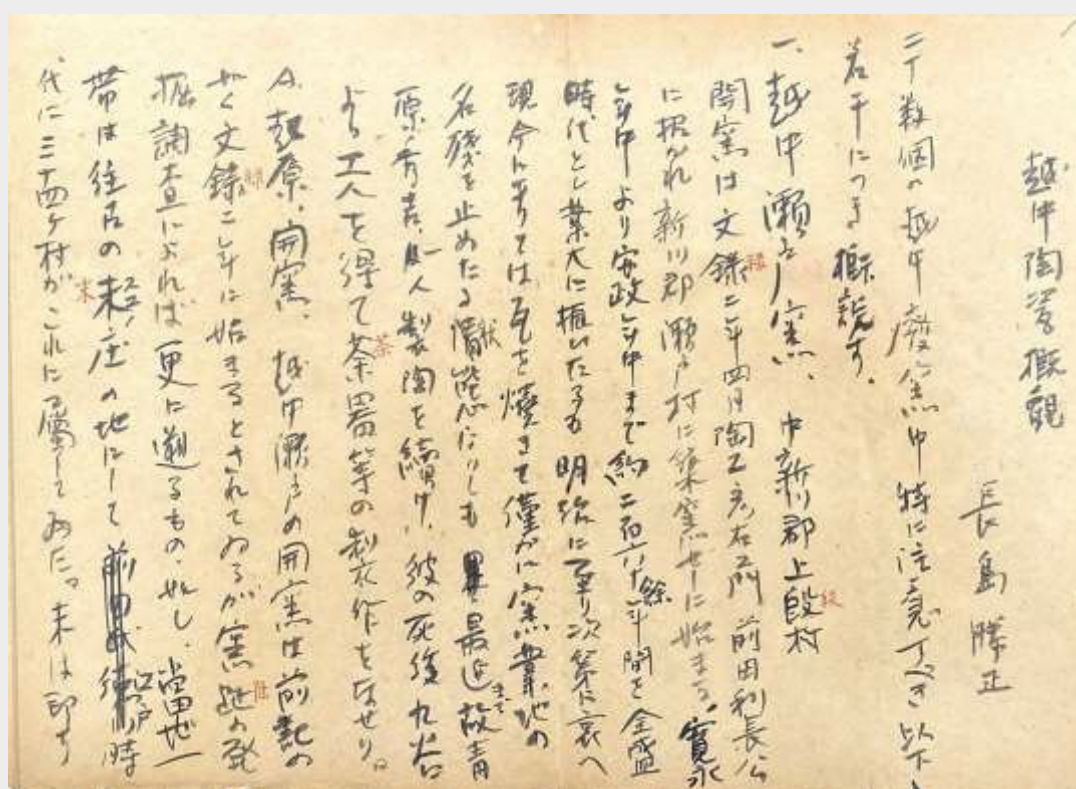 越中陶窯概観
長島勝正
二十数個の越中廃窯中特に注意すべき以下
若干につき概説す。
一、越中瀬戸窯、中新川郡上段村
開窯は文録二年四月陶工彦右ヱ門前田利長公
に招かれ新川郡瀬戸村に築窯せしに始まる。寛永
年中より安政年中まで約二百六十余年間を全盛
時代とし業大に振いたるも明治に至り次第に衰へ
現今に至りては瓦を焼きて僅かに窯業地の
名残を止めたる状態なりしも最近まで故青
原秀吉 人製陶を続け、彼の死後九谷に
よる工人を得て茶器等の製作をなせり。
A. 起原、開窯、越中瀬戸の開窯は前記の
如く文録二年に始まるとされてゐるが窯跡の発
掘調査によれば更に遡るもの、如し、当地一
帯は往古の末庄の地にして江戸時
代に三十四ヶ村がこれに属してゐた。末は即す